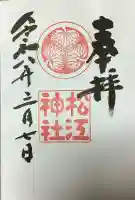 奉拝
松江
神社
令和六年三月七日